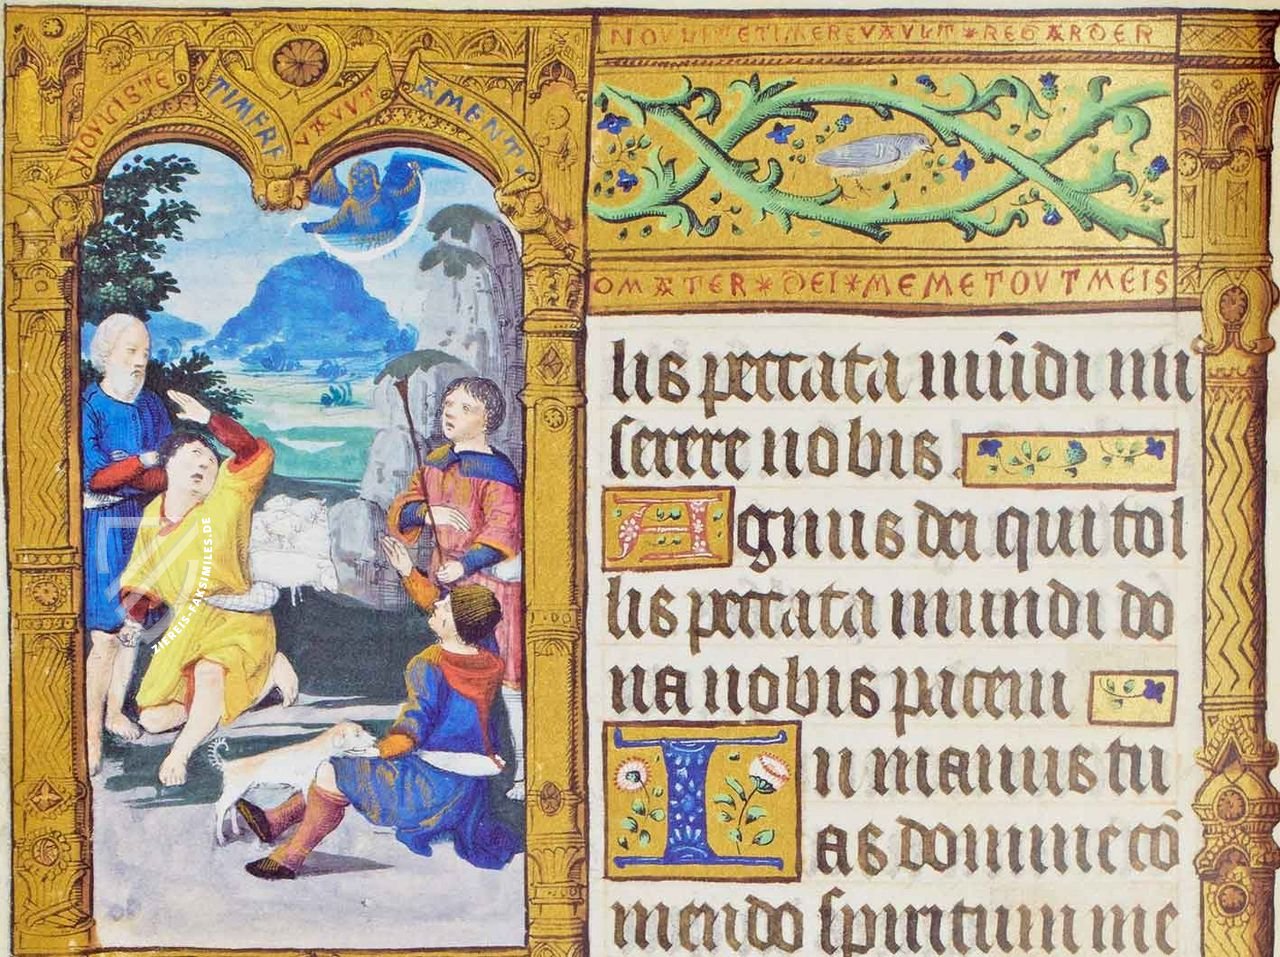 NOVLISTE
TIMERE
VAVLT
AMENT
NOVLISTETIMEREVAVLT*REGARDER
OMATER*DEI*MEMETOVTMEIS
lis peccata mũdi mi
serere nobis.
Agnus dei qui tol
lis peccata mundi do
na nobis pacem
In manus tu
as domine cõ
mendo spiritum me
ZIEREIS-FAKSIMILES.DE